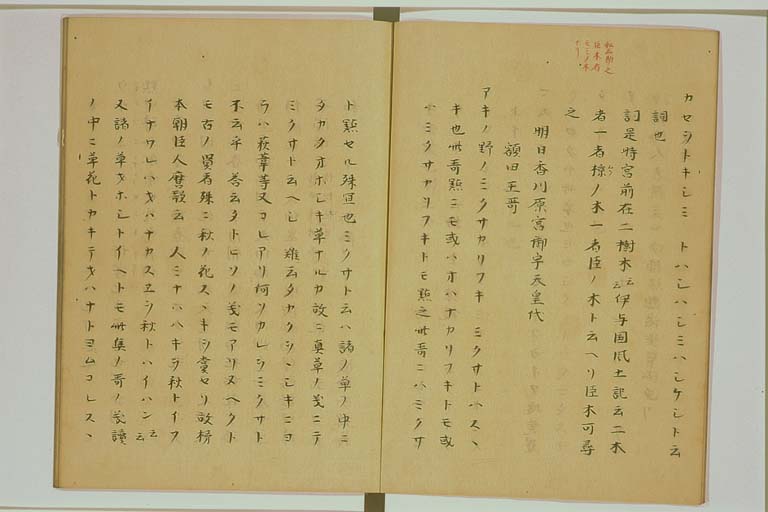 カセシトキシミ トハシハシミハシケシト云
詞也
訶是時宮前在二樹木云云伊与国風土記云二木
者一者椋ノ木一者臣ノ木ト云ヘリ臣木可尋
之
明日香川原宮御宇天皇代
額田王哥
アキノ野ノミクサカリフキ ミクサトハスヽ
キ也此哥點ニモ或ハオハナカリフキトモ或
ハミクサカリフキトモ點之此哥ニハミクサ
ト點セル殊宜也ミクサト云ハ諸ノ草ノ中ニ
タカクオホシキ草ナルカ故ニ真草ノ義ニテ
ミクサト云ヘシ 難云タカクシヽシキニヨ
ラハ萩葦等又コレアリ何ソカレヲミクサト
不云乎 答云タトヒソノ義モアリヌヘクト
モ古ノ賢者殊ニ秋ノ花スヽキヲ賞セリ故柿
本朝臣人麿歌云 人ミナハハキヲ秋トイフ
イナワレハオハナカスヱヲ秋トハイハン云云
又諸ノ草オホシトイヘトモ此集ノ哥ノ義讀
ノ中ニ草花トカキテオハナトヨムコレスヽ